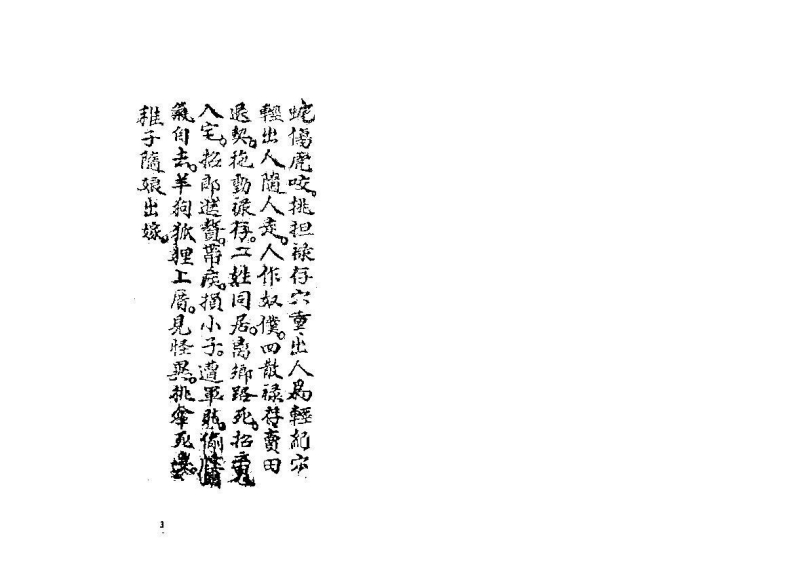 蛇傷虎咬。挑担禄存六重出人為輕紀穴
輕出人隨人走。人作奴僕。四散禄存賣田
退契。拖動禄存。二姓同居。离鄉路死。招
入宅。招郎進贅。帶疾。損小子。遭軍賊。偷
氣自去。羊狗狐狸上厝。見怪異。挑傘死
稚子隨娘出嫁。